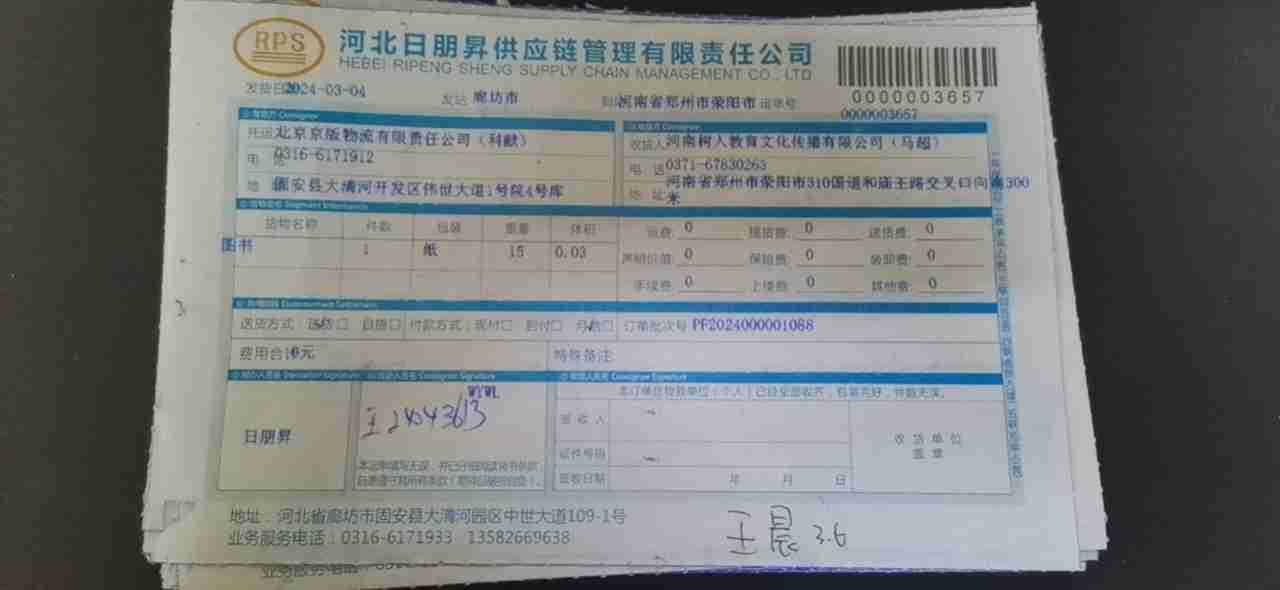 RPS
河北日朋昇供应链管理有限责任公司
HEBEI RIPENG SHENG SUPPLY CHAIN MANAGEMENT CO., LTD
0000003657
发货日 2024-03-04 发站 廊坊市 到 河南省郑州市荥阳市 运单号: 0000003657
托运 北京京版物流有限责任公司（科献）
收货人 河南树人教育文化传播有限公司（马超）
电 0316-6171912
电 话 0371-67830263
地 固安县大清河开发区伟世大道1号院4号库
地 址 河南省郑州市荥阳市310国道和庙王路交叉口向南300
米
货物名称 件数 包装 重量 体积
图书 1 纸 15 0.03
运费: 0 提货费: 0 送货费: 0
声明价值: 0 保险费: 0 装卸费: 0
手续费: 0 上楼费: 0 其他费: 0
送货方式: 送货 自提 付款方式: 现付 到付 月结 订单批次号 PF2024000001088
费用合计 0元 特殊备注:
本订单往货单位（个人）已经全部收齐，包装完好，件数无误。
日朋昇
签 收 人
收 货 单 位
盖 章
证件号码
签收日期 年 月 日
地址：河北省廊坊市固安县大清河园区中世大道109-1号
业务服务电话：0316-6171933 13582669638
王晨 3.6